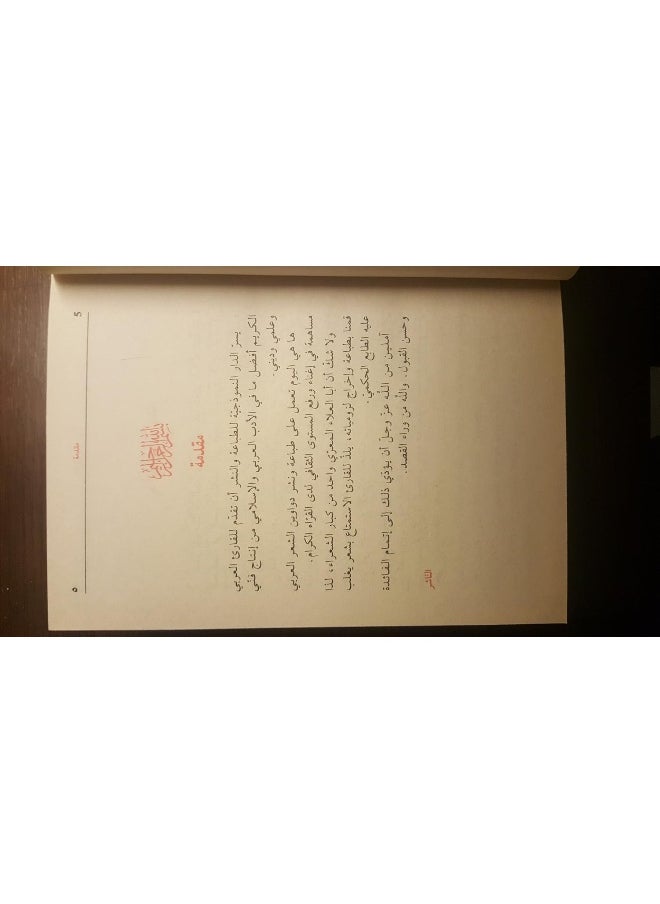 5 مقدمة ٥
بسم الله الرحمن الرحيم
مقدمة
يسر الدار النموذجية للطباعة والنشر أن تقدّم للقارئ العربي
الكريم أفضل ما في الأدب العربي والإسلامي من إنتاج فنّي
وعلمي وديني.
ها هي اليوم تعمل على طباعة ونشر دواوين الشعر العربي
مساهمة في إغناء ورفع المستوى الثقافي لدى القرّاء الكرام.
ولا شك أن أبا العلاء المعرّي واحد من كبار الشعراء، لذا
قمنا بطباعة وإخراج لزومياته، يلذّ للقارئ الاستمتاع بشعر يغلب
عليه الطابع الحكمي.
آملين من الله عزّ وجلّ أن يؤدّي ذلك إلى إتمام الفائدة
وحسن القبول. والله من وراء القصد.
الناشر